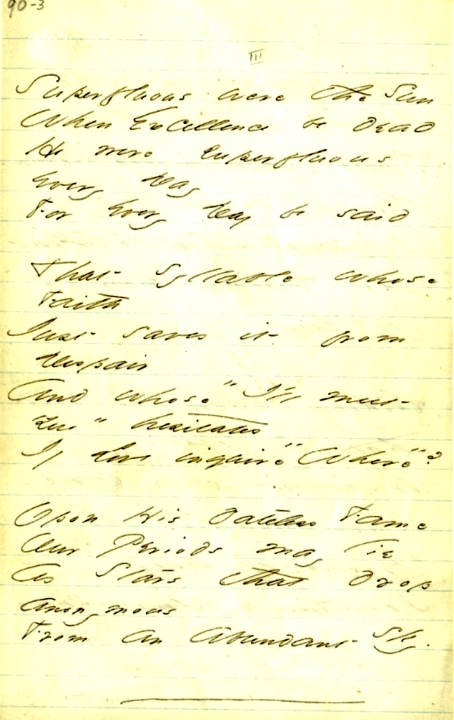 90-3
III
Superfluous were the Sun
When Excellence be dead
He were superfluous
every Day
For every Day be said
That syllable whose
Faith
Just saves it from
Despair
And whose "I'll meet
You" hesitates
If Love inquire "Where"?
Upon His dateless Fame
Our Periods may lie
As Stars that drop
anonymous
From an abundant Sky.